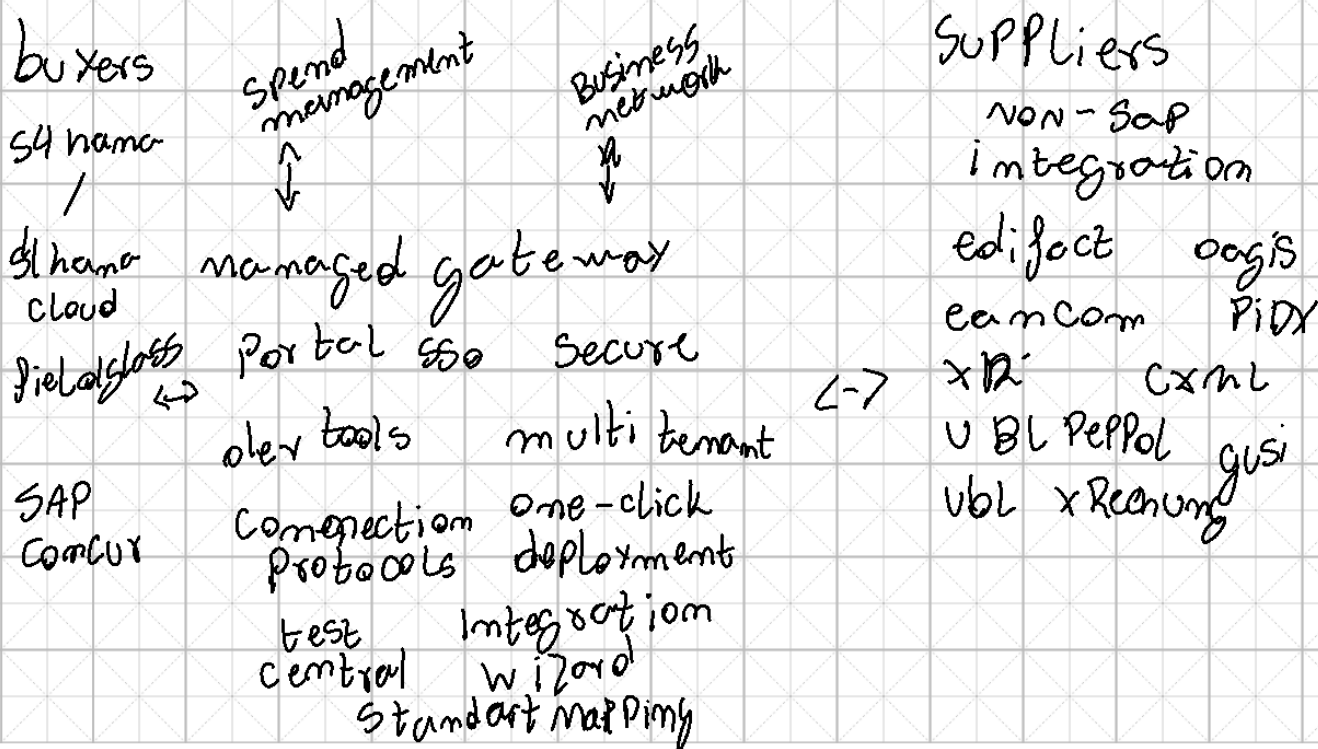 buyers
s4 hana
/
s4 hana
cloud
Fieldglass
<->
SAP
Concur
Spend
management
Business
network
managed gateway
Portal sso secure
dev tools multi tenant
Connection
Protocols
one-click
deployment
test
central
Integration
wizard
Standart mapping
<->
Suppliers
NON-Sap
integration
edifact oagis
eancom PiDX
cxml
UBL PePPol
gusi
UbL xRechung